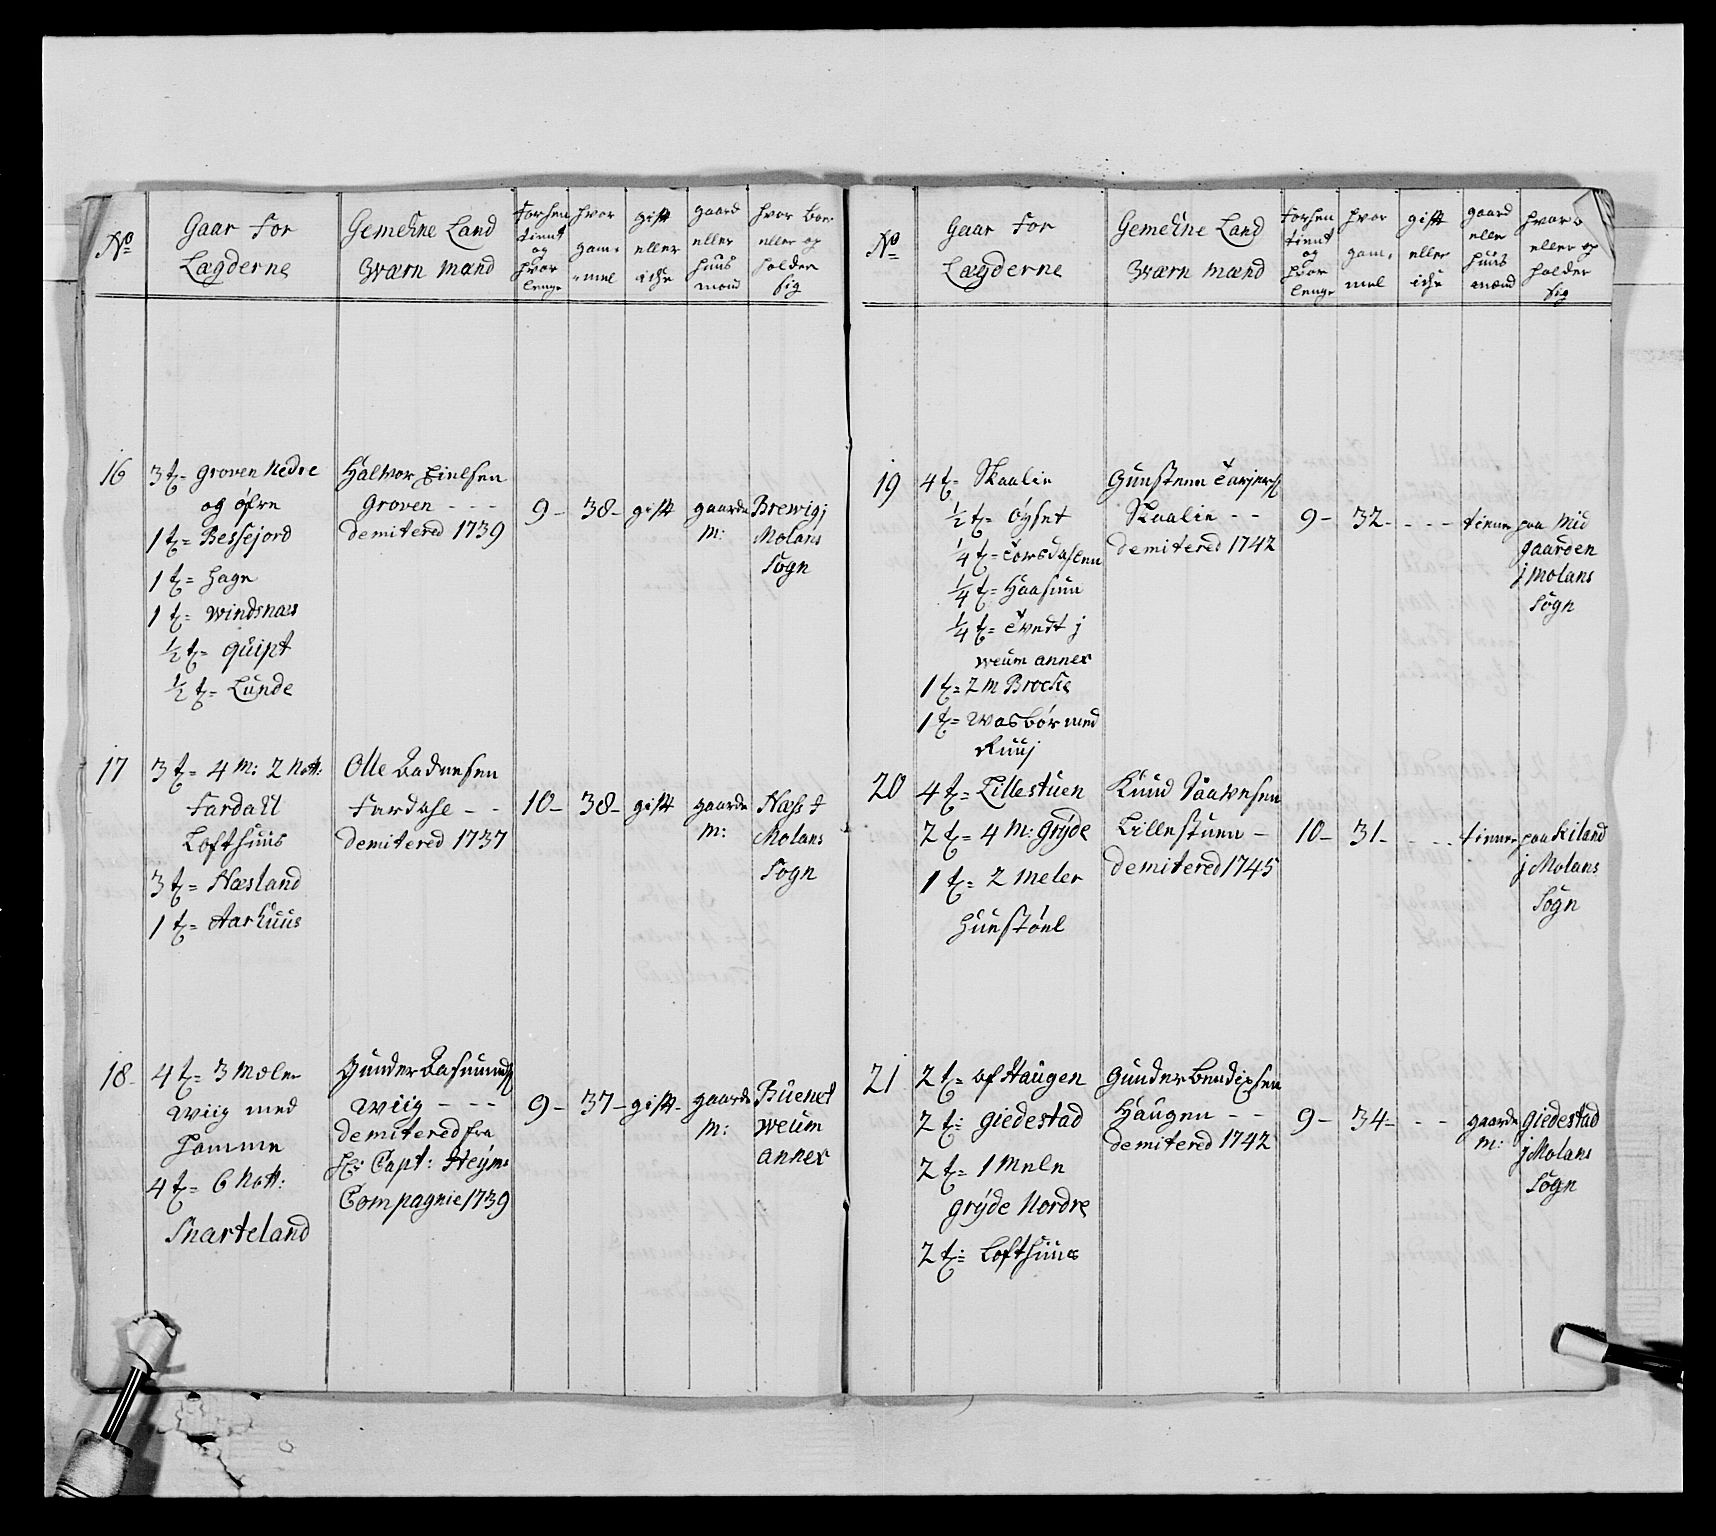 No
Gaar For
Lægderne
Gemehne Land
Wærn Mænd
Forhen
tient
og
hvor
lenge
hvor
gam-
mel
gift
eller
iche
gaard
eller
huus
mand
hvor boe
eller op
holder
sig
16
3 t= Groven Nedre
og øfre
1 t= Bessejord
1 t= Hage
1 t= Windsnæs
½ t= Quipt
½ t= Lunde
Halvor Eielsen
Groven - - -
demitered 1739
9 - 38 - gift
gaarde
M:
Brewig j
Molans
Sogn
17
3 t= 4 M: 2 Nott:
Fardall
Lofthuus
3 t= Næsland
1 t= Aarhuus
Olle Dadvesen
Fardale - -
demitered 1737
10 - 38 - gift
gaarde
M:
Næss j
Molans
Sogn
18
4 t= 3 Mæler
Wiig med
Hamme
4 t= 6 Nott:
Snarteland
Gunder Aasmunds
Wiig - - -
demitered fra
Hr Capt: Heyms
Compagnie 1739
9 - 37 - gift -
gaarde
M:
Buenet
Weum
annex
No
Gaar For
Lægderne
Gemehne Land
Wærn Mænd
Forhen
tient
og
hvor
lenge
hvor
gam-
mel
gift
eller
iche
gaard
eller
huus
mænd
hvor boe
eller op
holder
sig
19
4 t= Skaalie
½ t= Øyset
¼ t= Torsdalen
¼ t= Haasuun
¼ t= Tvedt j
Weum annex
1 t= 2 M Brocke
1 t= Wasbør med
Ruuj
Gunsteen Tarjers
Skaalie - -
demitered 1742
9 - 32 - - - -
tiener
paa Mid
gaarden
j Molans
Sogn
20
4 t= Lillestuen
2 t= 4 M: Grÿde
1 t= 2 Meler
Huustøel
Knud Saavesen
Lillestuen -
demitered 1745
10 - 31 - - - -
tiener
paa Kiland
j Molans
Sogn
21
2 t= af Haugen
2 t= Giedestad
2 t= 1 Mele
Grÿde Nordre
2 t= Lofthuus
Gunder Bendixsen
Haugen - -
demitered 1742
9 - 34 - - -
gaarde
M:
Giedestad
j Molans
Sogn